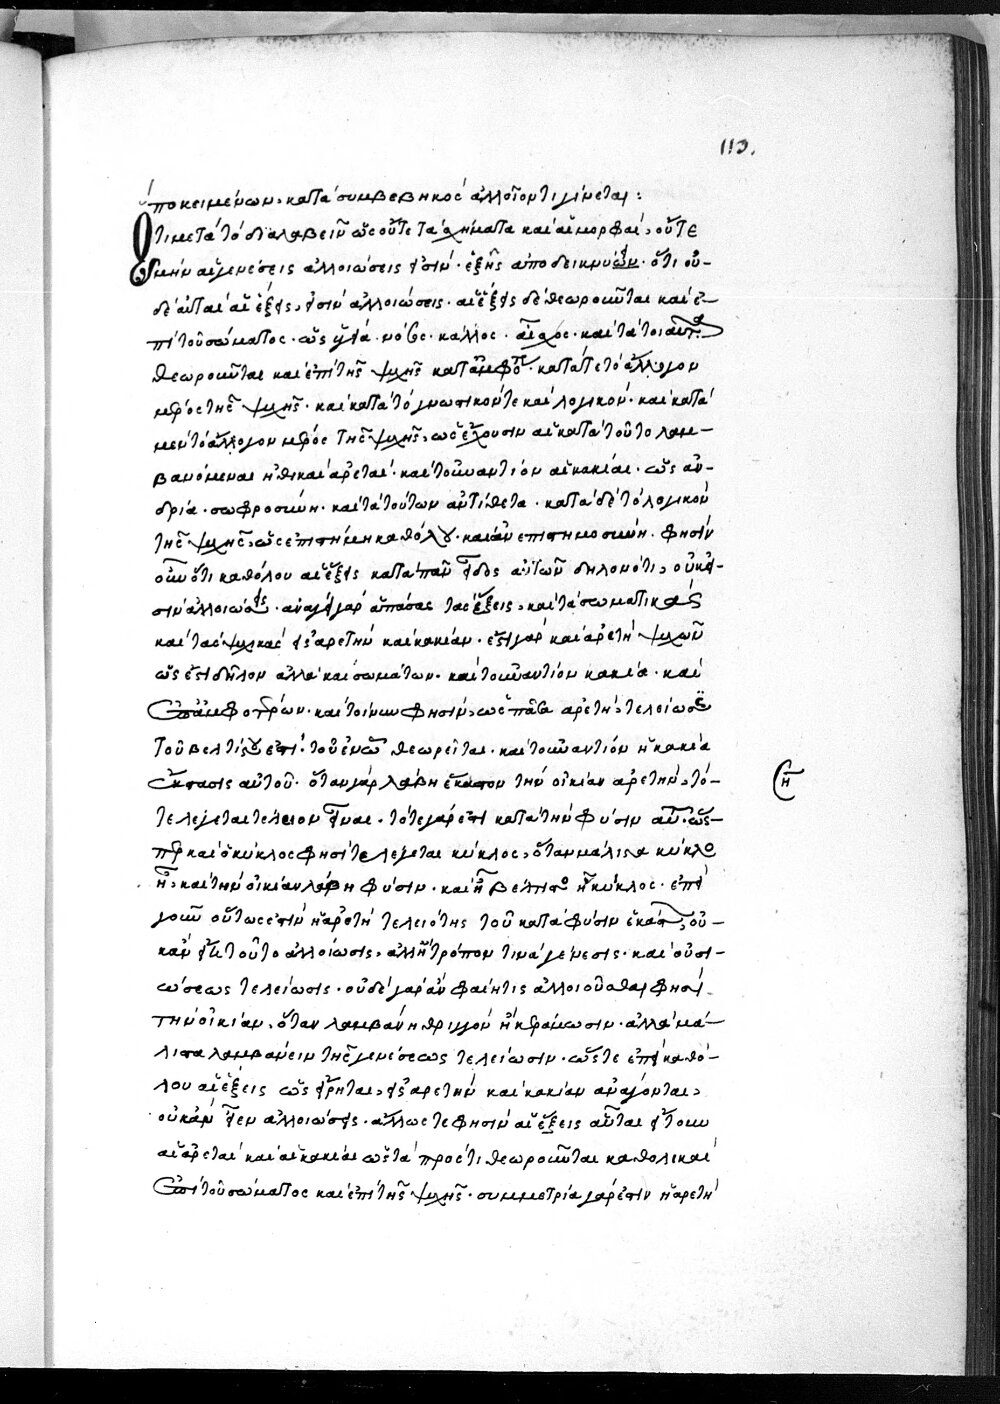 113.
ὑποκειμένων, κατὰ συμβεβηκὸς ἀλλοῖόν τι γίνεται:
Ὅτι μετὰ τὸ διαλαβεῖν ὡς οὔτε τὰ σχήματα καὶ αἱ μορφαὶ, οὔτε
μὴν αἱ γενέσεις ἀλλοιώσεις εἰσίν. ἑξῆς ἀποδεικνύων. ὅτι οὐ-
δὲ αὗται αἱ ἕξεις, εἰσὶν ἀλλοιώσεις. αἱ ἕξεις δὲ θεωροῦνται καὶ ἐ-
πὶ τοῦ σώματος. ὡς ὑγεία. νόσος. κάλλος. αἶσχος. καὶ τὰ τοιαῦτα
θεωροῦνται καὶ ἐπὶ τῆς ψυχῆς κατ' ἄμφω. κατά τε τὸ ἄλογον
μέρος τῆς ψυχῆς. καὶ κατὰ τὸ γνωστικόν τε καὶ λογικόν. καὶ κατὰ
μὲν τὸ ἄλογον μέρος τῆς ψυχῆς, ὡς ἔχουσιν αἱ κατὰ τοῦτο λαμ-
βανόμεναι ἠθικαὶ ἀρεταί. καὶ τοὐναντίον αἱ κακίαι. ὡς ἀν-
δρία. σωφροσύνη. καὶ τὰ τούτων ἀντίθετα. κατὰ δὲ τὸ λογικὸν
τῆς ψυχῆς, ὡς ἐπιστήμη καθόλου. καὶ ἀνεπιστημοσύνη. φησὶν
οὖν ὅτι καθόλου αἱ ἕξεις κατὰ πᾶν εἶδος αὐτῶν δηλονότι, οὐκ εἰ-
σὶν ἀλλοιώσεις. ἀνάγει γὰρ ἁπάσας τὰς ἕξεις, καὶ τὰς σωματικὰς
καὶ τὰς ψυχικὰς εἰς ἀρετὴν καὶ κακίαν. ἔστι γὰρ καὶ ἀρετὴ ψυχῶν
ὡς ἔστι δῆλον ἀλλὰ καὶ σωμάτων. καὶ τοὐναντίον κακία. καὶ
ἐπ' ἀμφοτέρων. καὶ τοίνυν φησὶν, ὡς πᾶσα ἀρετὴ, τελείωσις
τοῦ βελτίστου ἐστὶ τοῦ ἐν ᾧ θεωρεῖται. καὶ τοὐναντίον ἡ κακία
ἔκστασις αὐτοῦ. ὅταν γὰρ λάβῃ ἕκαστον τὴν οἰκείαν ἀρετὴν, τό-
τε λέγεται τέλειον εἶναι. τότε γάρ ἐστι κατὰ τὴν φύσιν αὐτοῦ. ὥσ-
περ καὶ ὁ κύκλος φησὶ τε λέγεται κύκλος, ὅταν μάλιστα κύκλος
ᾖ, καὶ τὴν οἰκείαν λάβῃ φύσιν. καὶ ᾖ βέλτιστος ᾖ κύκλος. ἐπεὶ
γοῦν οὕτως ἐστὶν ἡ ἀρετὴ τελειότης τοῦ κατὰ φύσιν ἑκάστου, οὐ-
κ ἂν εἴη τοῦτο ἀλλοίωσις, ἀλλ' ἢ τρόπον τινὰ γένεσις. καὶ οὐσι-
ώσεως τελείωσις. οὐδὲ γὰρ ἂν φαίη τις ἀλλοιοῦσθαι φησὶ
τὴν οἰκίαν, ὅταν λαμβάνῃ θριγκὸν ἢ κεράμωσιν. ἀλλὰ μά-
λιστα λαμβάνειν τῆς γενέσεως τελείωσιν. ὥστε ἐπεὶ καθό-
λου αἱ ἕξεις ὡς εἴρηται, εἰς ἀρετὴν καὶ κακίαν ἀνάγονται,
οὐκ ἂν εἶεν ἀλλοιώσεις. ἄλλως τε φησὶν αἱ ἕξεις αὗται ἤτοι
αἱ ἀρεταὶ καὶ αἱ κακίαι ὡς τὰ πρός τι θεωροῦνται καθολικαὶ
ἐπὶ τοῦ σώματος καὶ ἐπὶ τῆς ψυχῆς. συμμετρία γάρ ἐστιν ἡ ἀρετὴ